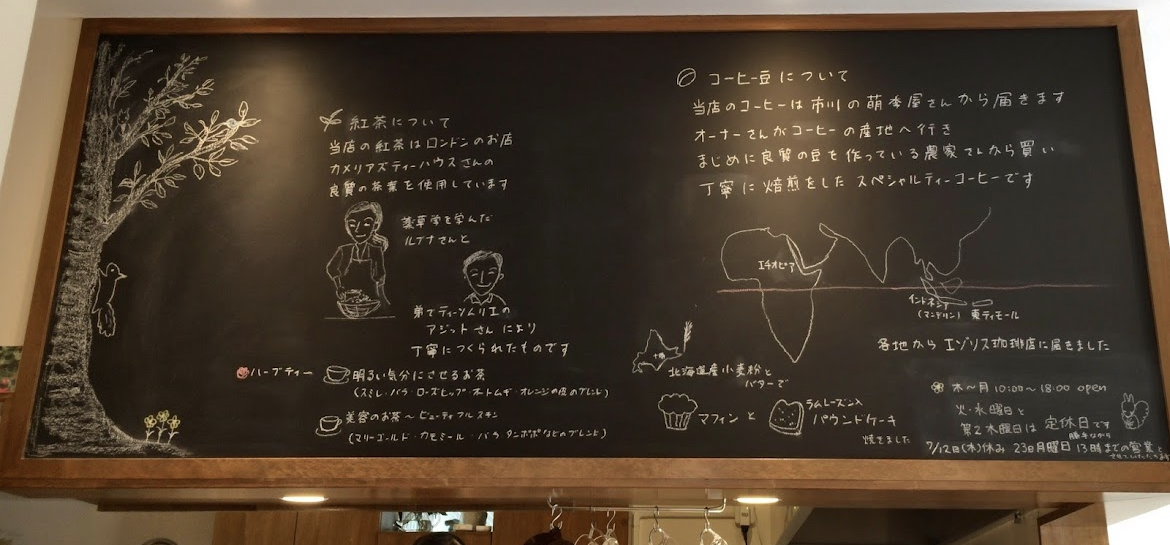 紅茶について
当店の紅茶はロンドンのお店
カメリアズティーハウスさんの
良質の茶葉を使用しています
薬草学を学んだ
ルブナさんと
弟でティーソムリエの
アジットさんにより
丁寧につくられたものです
ハーブティー
明るい気分にさせるお茶
(スミレ・バラ・ローズヒップ・オートムギ・オレンジの皮のブレンド)
美容のお茶〜ビューティフルスキン
(マリーゴールド・カモミール・バラ タンポポなどのブレンド)
コーヒー豆について
当店のコーヒーは市川の萌季屋さんから届きます
オーナーさんがコーヒーの産地へ行き
まじめに良質の豆を作っている農家さんから買い
丁寧に焙煎をしたスペシャルティーコーヒーです
エチオピア
インドネシア
(マンデリン)
東ティモール
各地からエゾリス珈琲店に届きました
十勝
北海道産小麦粉と
バターで
マフィンと
ラムレーズン入
パウンドケーキ
焼きました
木〜月 10:00〜18:00 open
火・水曜日と
第2木曜日は定休日です
勝手ながら
7/12日(木)休み 23日月曜日 13時までの営業と
させていただきます